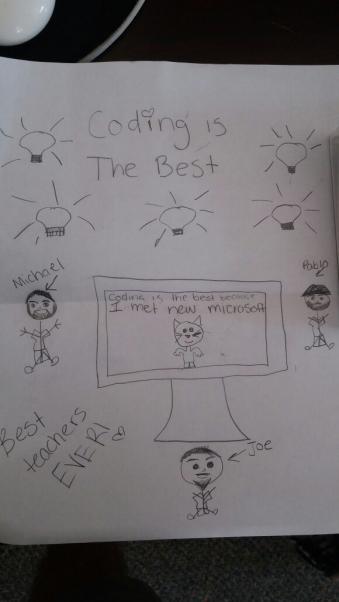 Coding is
The Best
Michael
Pablo
Coding is the best because
I met new microsoft
Best
teachers
EVER!
Joe